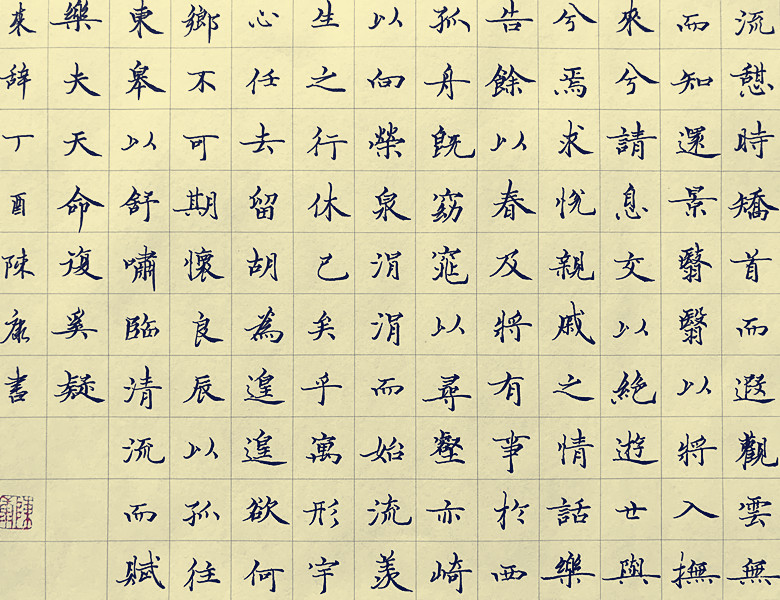 流憩時矯首而遐觀雲無
而知還景翳翳以將入撫
來兮請息交以絕遊世與
兮焉求悅親戚之情話樂
告餘以春及將有事於西
孤舟既窈窕以尋壑亦崎
以向榮泉涓涓而始流羨
生之行休已矣乎寓形宇
心任去留胡為遑遑欲何
鄉不可期懷良辰以孤往
東皋以舒嘯臨清流而賦
樂夫天命復奚疑
來辭丁酉陳康書